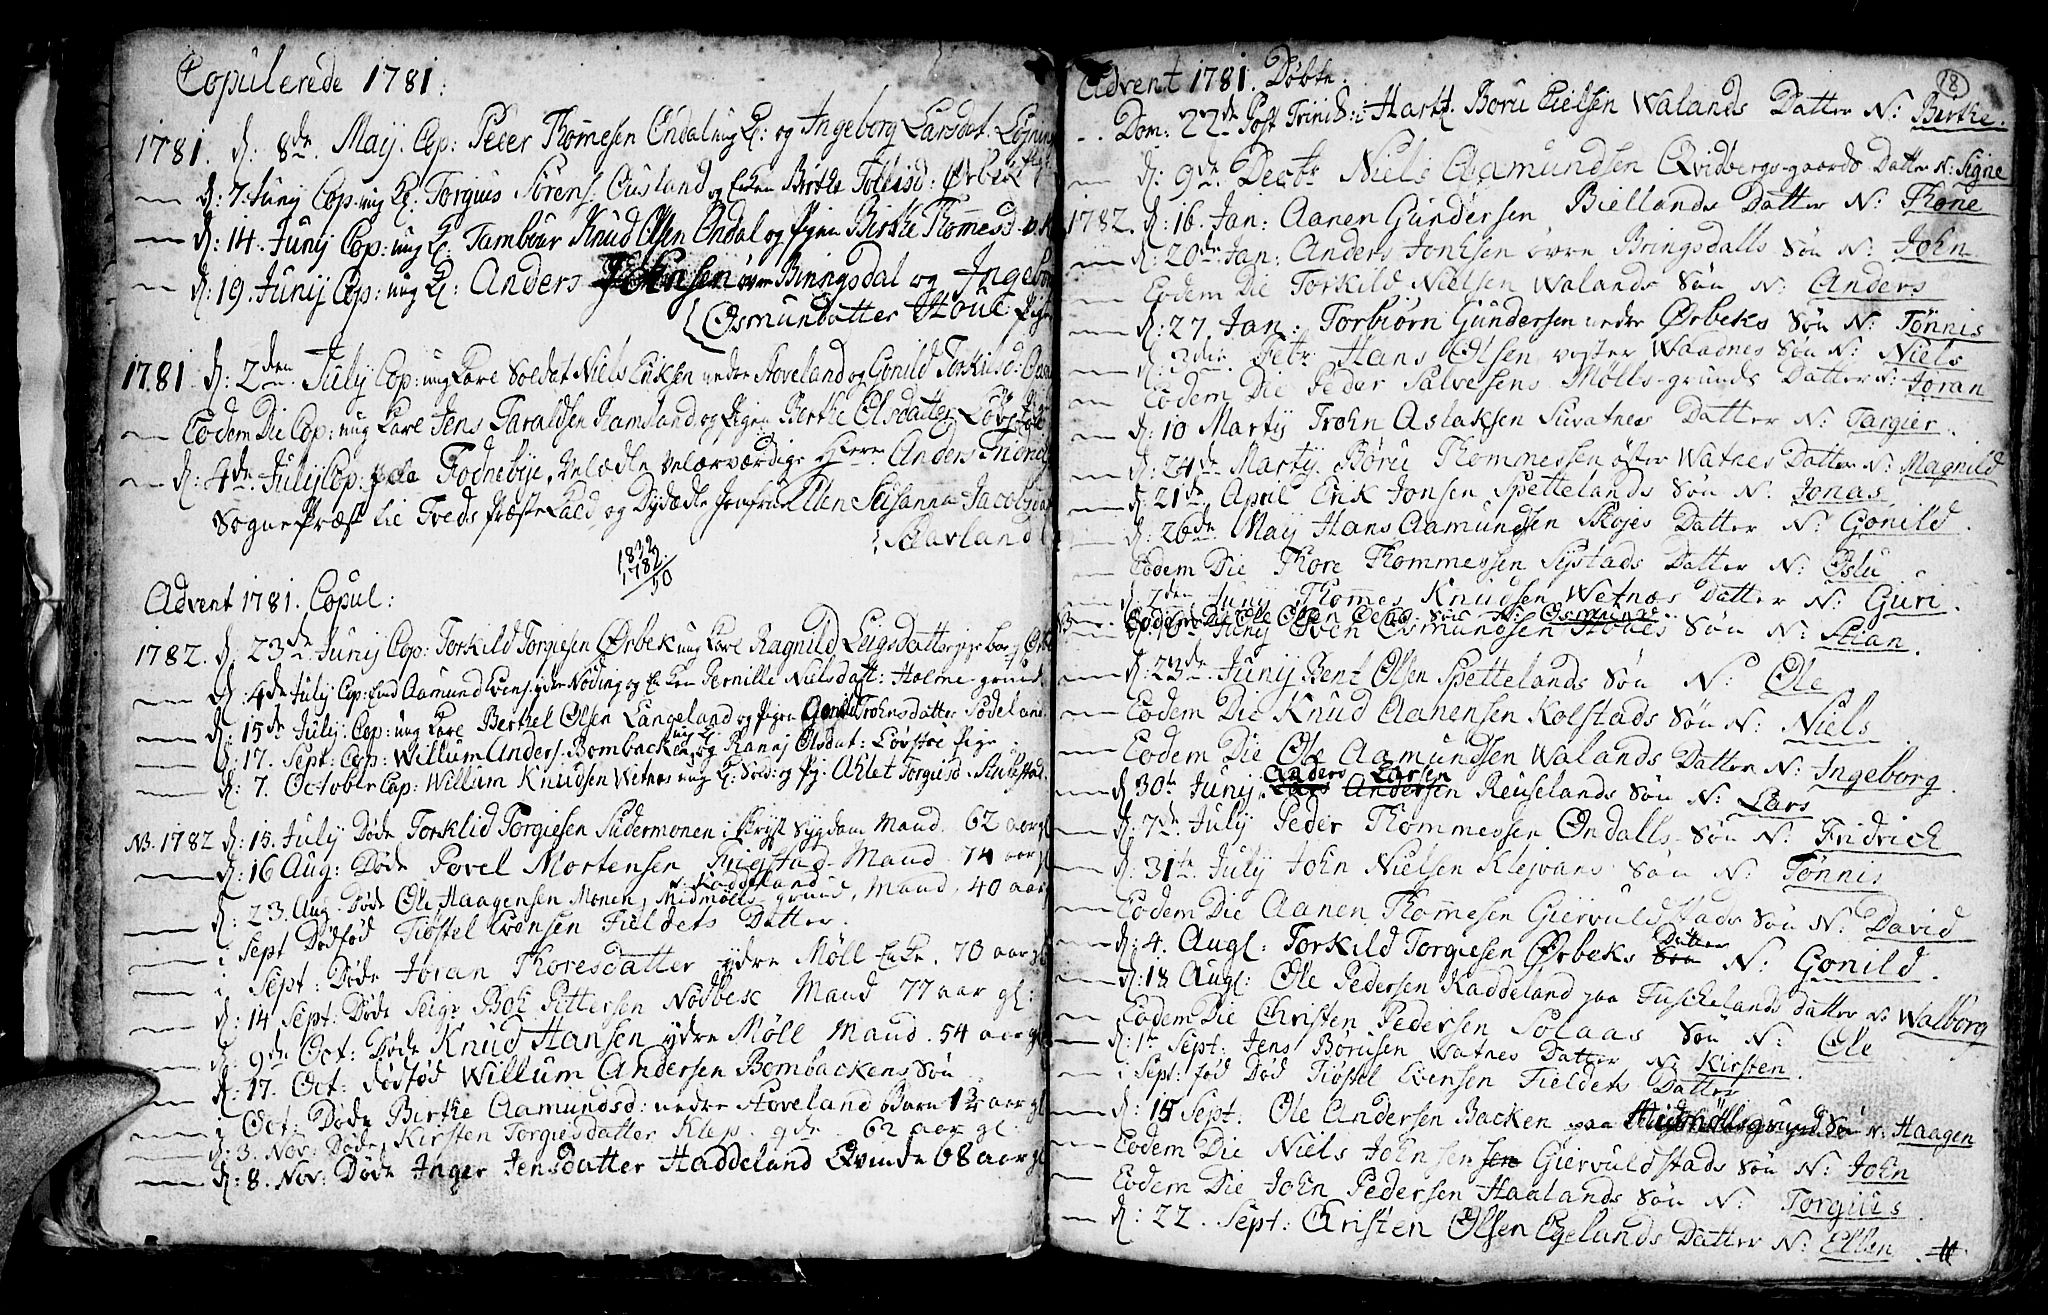 Copulerede 1781:
1781. d: 8de May. Cop: Peter Thomesen Ondal ung K: og Ingeborg Larsdat:
— d: 7 Juny Cop: ung K: Torgius Sørens: Ousland og Enken Berthe Tollisd: Ørbek
— d: 14. Junij Cop: ung K: Tambour Knud Olsen Ondal og Pigen Birthe Thomesd
— d: 19. Junij Cop: ung K: Anders Johnsen øvre Bringsdal og Ingebor
Osmundatter Stoue Pige
1781. d: 2den July Cop: ung Karl Soldat Niels Eriksen nedre Hoveland og Gonild Torkilsd:
— Eodem Die Cop: ung Karl Jens Taraldsen Ramsland og Pigen Berthe Olsdatter Løvs
— d: 4de Julij Cop: Velædle Velærværdige Herr Anders
SognePræst til Tveds Præste Kald og Dydædle Jomfru Ellen Susanna Jacobsdat
Aarland
1832
1782
50
Advent 1781. Copul:
1782. d: 23de Junij Cop: Torkild Torgiesen Ørbek ung Karl Ragnild Leigsdatter
— d: 4de July Cop: Aamund Svens: ydre Noding og Enken Pernille Nielsdatt: Holme-grund
— d: 15de July. Cop: ung Karl Berthel Olsen Langeland og Pigen Gonild Trohnsdatter Sodeland
— d: 17. Sept: Cop: Willum Anders: Bombacken ung K: og Rannj Olsdat: Løvstoe Pige
— d: 7. October Cop: Willum Knudsen Wetnes ung K: Sold: og Pg: Ahlet Torgiusd:
NB. 1782 d: 15. July Døde Torklid Torgiesen Sudermonen i Bryst Sygdom Mand. 62 aar gl
— d: 16 Aug: Døde Povel Mortensen Mand. 74 aar gl
Kaddeland
— d: 23. Aug. Døde Ole Haagensen Monen, Midmølls grund, Mand. 40 aar
— i Sept Dødfød Tiøstel Evensen Fieldets Datter.
— i Sept: Døde Joran Thoresdatter ydre Møll Enke. 70 aar gl
— d: 14 Sept: Døde Seigr Boe Pittersen Nodbek Mand 77 aar gl:
— d: 9de Oct: Døde Knud Hansen ydre Møll Mand. 54 aar gl
— d: 17. Oct: Dødfød Willum Andersen Bombackens Søn
— i Oct: Døde Birthe Aamundsd: nedre Hoveland Barn 1 aar gl
— d: 3. Nov: Døde Kirsten Torgiesdatter Klep. 62 aar gl:
— d: 8. Nov: Døde Inger Jensdatter Haddeland Qvinde 68 aar gl
18
Advent 1781. Døbte:
— Dom: 22de Post Trinit: Børu Eielsen Walands Datter N: Birthe.
— d: 9de Decbr Niels Aamundsen Qvidbergs-gaards Datter N: Signe
1782. d: 16. Jan: Aanen Gundersen Biellands Datter N: Thone
— d: 20de Jan: Anders Johnsen øvre Bringsdalls Søn N: John
— Eodem Die Torkild Nielsen Walands Søn N: Anders
— d: 27 Jan: Torbiørn Gundersen nedre Ørbeks Søn N: Tønnis
— d: 3die Febr: Hans Olsen vester Waadnes Søn N: Niels
— Eodem Die Peder Salvesens Mølls-grunds Datter N: Joran
— d: 10 Martij Trohn Aslaksen Survatnes Datter N: Targier
— d: 24de Martij Børu Thommessen øster Watnes Datter N: Magnild
— d: 21de April Erik Jonsen Spettelands Søn N: Jonas
— d: 26de May Hans Aamundsen Skojes Datter N: Gonild.
— Eodem Die Thore Thommessen Systads Datter N: Oslu
— d. 7den Junij Thomes Knudsen Wetnæs Datter N: Guri.
NB. — Eodem Die Ole Olsen Søn N: Osmund.
— d: 16de Junij Sven Osmundsen Stoues Søn N: Stian.
— d: 23de Junij Bent Olsen Spettelands Søn N: Ole
— Eodem Die Knud Aanensen Kolstads Søn N: Niels
— Eodem Die Ole Aamundsen Walands Datter N: Ingeborg.
Anders Larsen
— d 30te Junij. Lars Andersen Reuselands Søn N: Lars
— d: 7de July Peder Thommessen Ondalls Søn N: Fridrich
— d: 31te July John Nielsen Klejvans Søn N: Tønnis
— Eodem Die Aanen Thomesen Giervuldstads Søn N: David
Datter
— d: 4. Augl: Torkild Torgiesen Ørbeks Søn N: Gonild.
— d: 18 Augl: Ole Pedersen Kaddeland paa Tuschelands Datter N: Walborg
— Eodem Die Christen Pedersen Solaas Søn N: Ole
— d: 1te Sept: Jens Børusen Watnes Datter N: Kirsten.
— i Sept: fød Død Tiøstel Evensen Fieldets Datter
— d: 15 Sept: Ole Andersen Backen paa Midmøllsgrund Søn N: Haagen
— Eodem Die Niels Johnsensen Giervuldstads Søn N: John
— Eodem Die John Pedersen Haalands Søn N: Torgius.
— d: 22. Sept: Christen Olsen Egelunds Datter N: Ellen